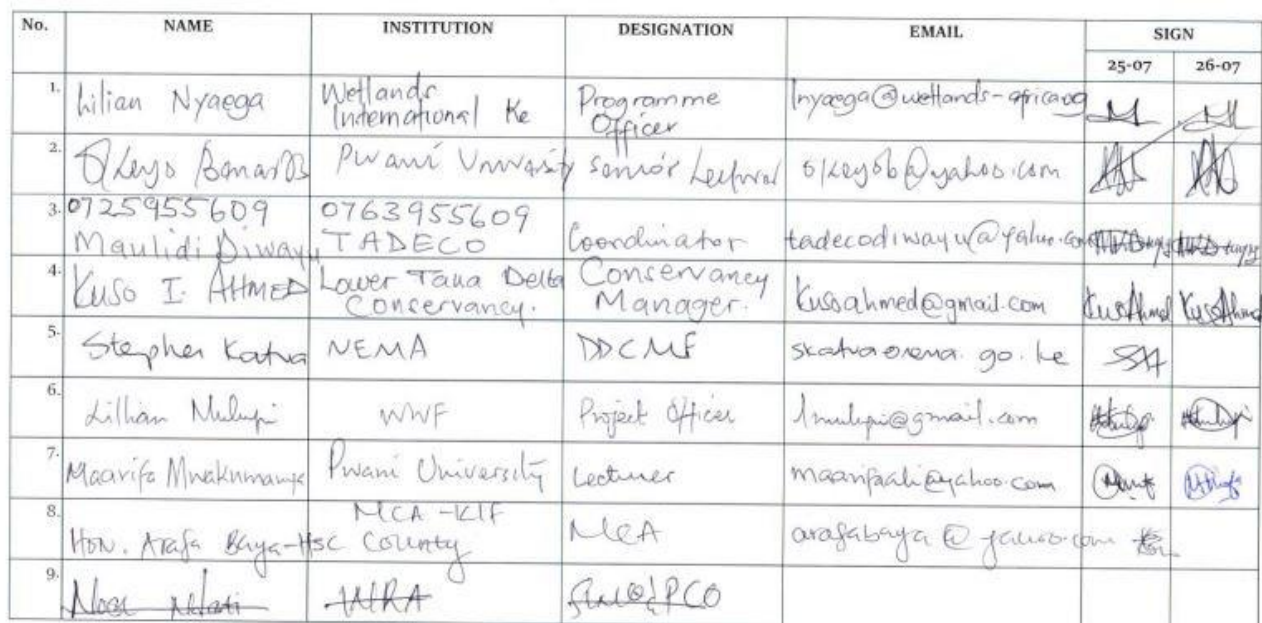 No. NAME INSTITUTION DESIGNATION EMAIL SIGN
25-07 26-07
1. Lilian Nyaega Wetlands International Ke Programme Officer lnyaega@wetlands-africa.og
2. Okeyo Benards Pwani University Senior Lecturer okeyob@yahoo.com
3. 0725955609 0763955609
Maulidi Diwayu TADECO Coordinator tadecodiwayu@yahoo.com
4. Kuso I. AHMED Lower Tana Delta Conservancy. Conservancy Manager. Kusoahmed@gmail.com KusoAhmed KusoAhmed
5. Stephen Katua NEMA DDCMF
6. Lillian Mulupi WWF Project Officer lmulupi@gmail.com
7. Maarifa Mwakumanya Pwani University Lecturer maarifaali@yahoo.com
8. HON. Arafa Baya-HSC MCA-KIF County MCA arafabaya@yahoo.com
9. WRA PCO